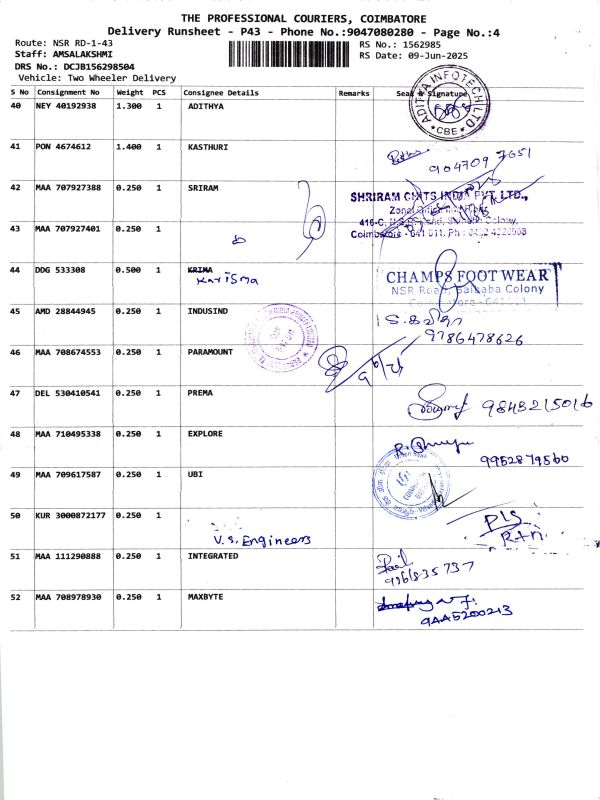 THE PROFESSIONAL COURIERS, COIMBATORE
Delivery Runsheet - P43 - Phone No.:9047080280 - Page No.:4
Route: NSR RD-1-43
RS No.: 1562985
Staff: AMSALAKSHMI
RS Date: 09-Jun-2025
DRS No.: DCJB156298504
Vehicle: Two Wheeler Delivery
S No Consignment No Weight PCS Consignee Details Remarks Seal & Signature
40 NEY 40192938 1.300 1 ADITHYA
ADITYA INFOTECH LTD
* CBE *
41 PON 4674612 1.400 1 KASTHURI
904709 7651
42 MAA 707927388 0.250 1 SRIRAM
SHRIRAM CHITS INDIA PVT. LTD.,
43 MAA 707927401 0.250 1
Coimbatore - 641 011, Ph : 0422 4220963
44 DDG 533308 0.500 1 KRIMA
Karisma
CHAMPS FOOT WEAR
NSR Road, Saibaba Colony
45 AMD 28844945 0.250 1 INDUSIND
9786478626
46 MAA 708674553 0.250 1 PARAMOUNT
47 DEL 530410541 0.250 1 PREMA
9843215016
48 MAA 710495338 0.250 1 EXPLORE
9952879560
49 MAA 709617587 0.250 1 UBI
50 KUR 3000872177 0.250 1
V.S. Engineers
Pls
Rtn.
51 MAA 111290888 0.250 1 INTEGRATED
9961835737
52 MAA 708978930 0.250 1 MAXBYTE
9AA5200213